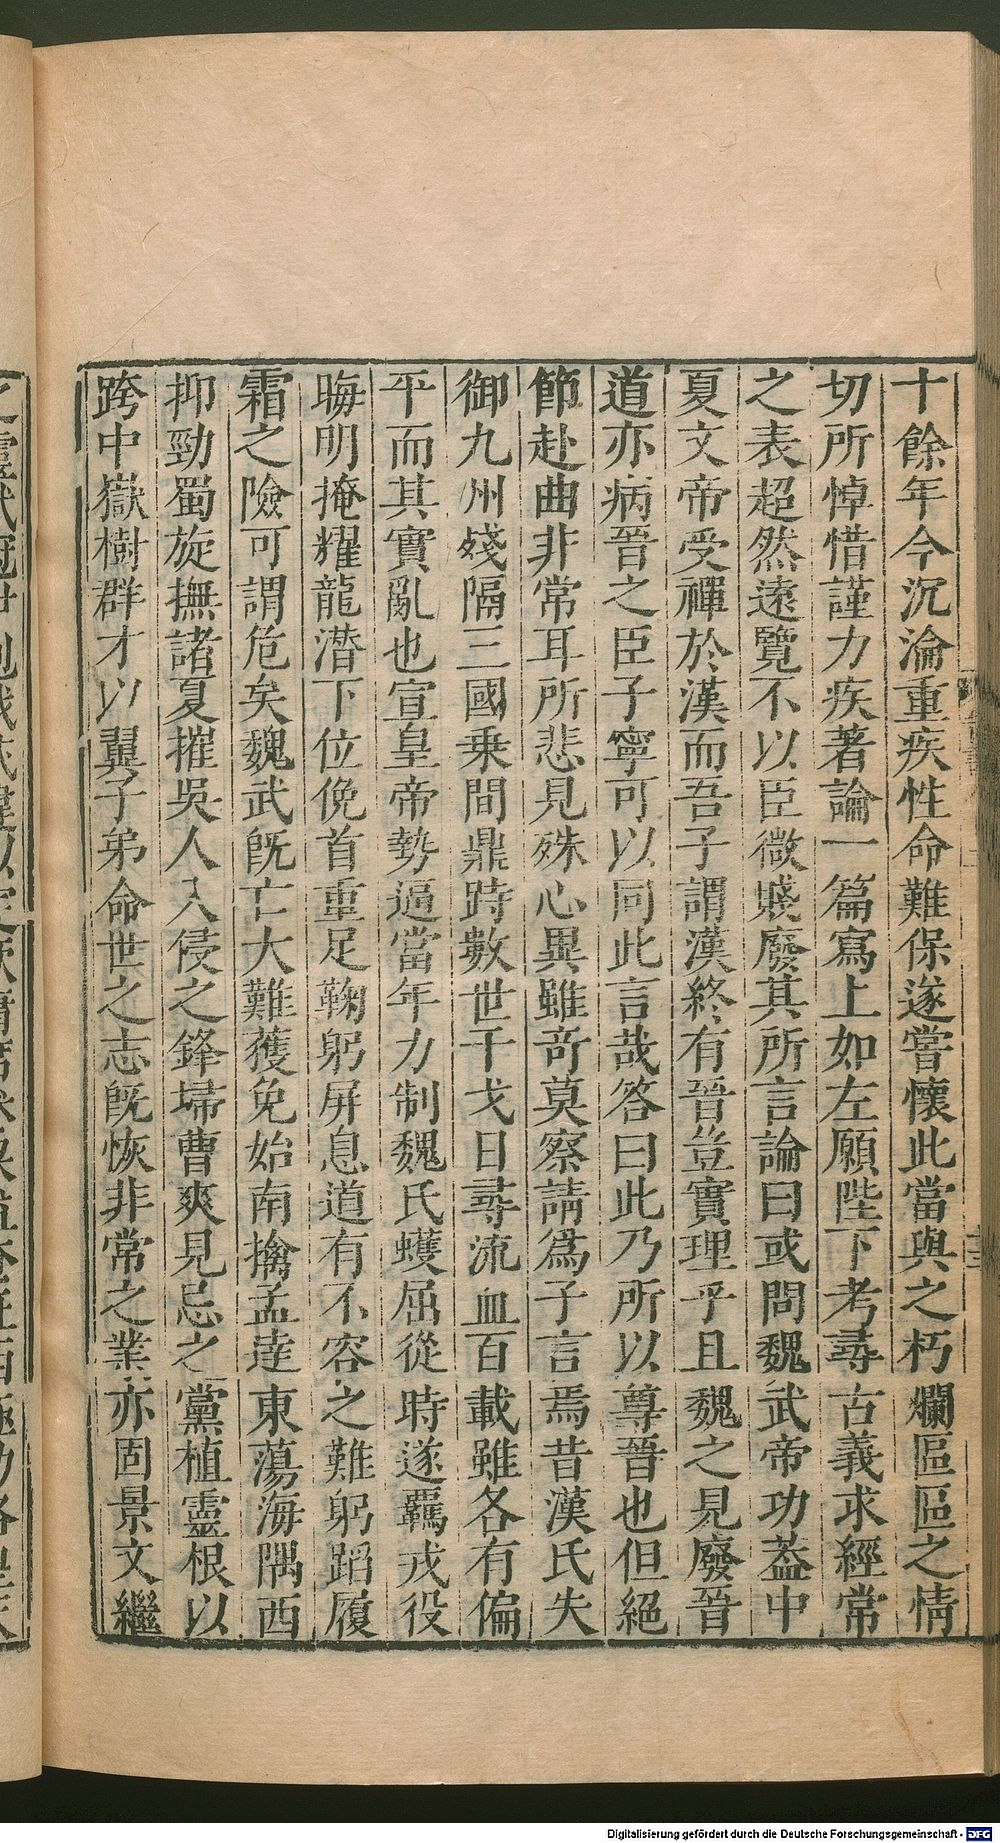 十餘年今沉淪重疾性命難保遂嘗懷此當與之朽爛區區之情
切所悼惜謹力疾著論一篇寫上如左願陛下考尋古義求經常
之表超然遠覽不以臣微賤廢其所言論曰或問魏武帝功蓋中
夏文帝受禪於漢而吾子謂漢終有晉豈實理乎且魏之見廢晉
道亦病晉之臣子寧可以同此言哉答曰此乃所以尊晉也但絕
節赴曲非常耳所悲見殊心異雖奇莫察請爲子言焉昔漢氏失
御九州殘隔三國乗間鼎跱數世干戈日尋流血百載雖各有偏
平而其實亂也宣皇帝勢逼當年力制魏氏蠖屈從時遂羈戎役
晦明掩耀龍潛下位俛首重足鞠躬屏息道有不容之難躬蹈履
霜之險可謂危矣魏武旣亡大難獲免始南擒孟逹東蕩海隅西
抑勁蜀旋撫諸夏摧吳人入侵之鋒埽曹爽見忌之黨植靈根以
跨中嶽樹群才以翼子弟命世之志旣恢非常之業亦固景文繼
Digitalisierung gefördert durch die Deutsche Forschungsgemeinschaft - DFG